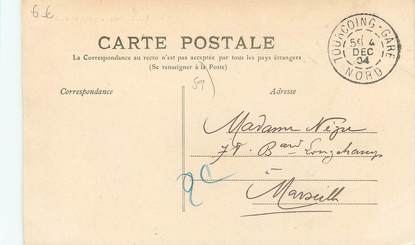 6 €
CARTE POSTALE
La Correspondance au recto n'est pas acceptée par tous les pays étrangers
(Se renseigner à la Poste)
TOURCOING-GARE
5E 4
DEC
04
NORD
59)
Correspondance
Adresse
Madame Nègre
Bard Longchamp
à
Marseille